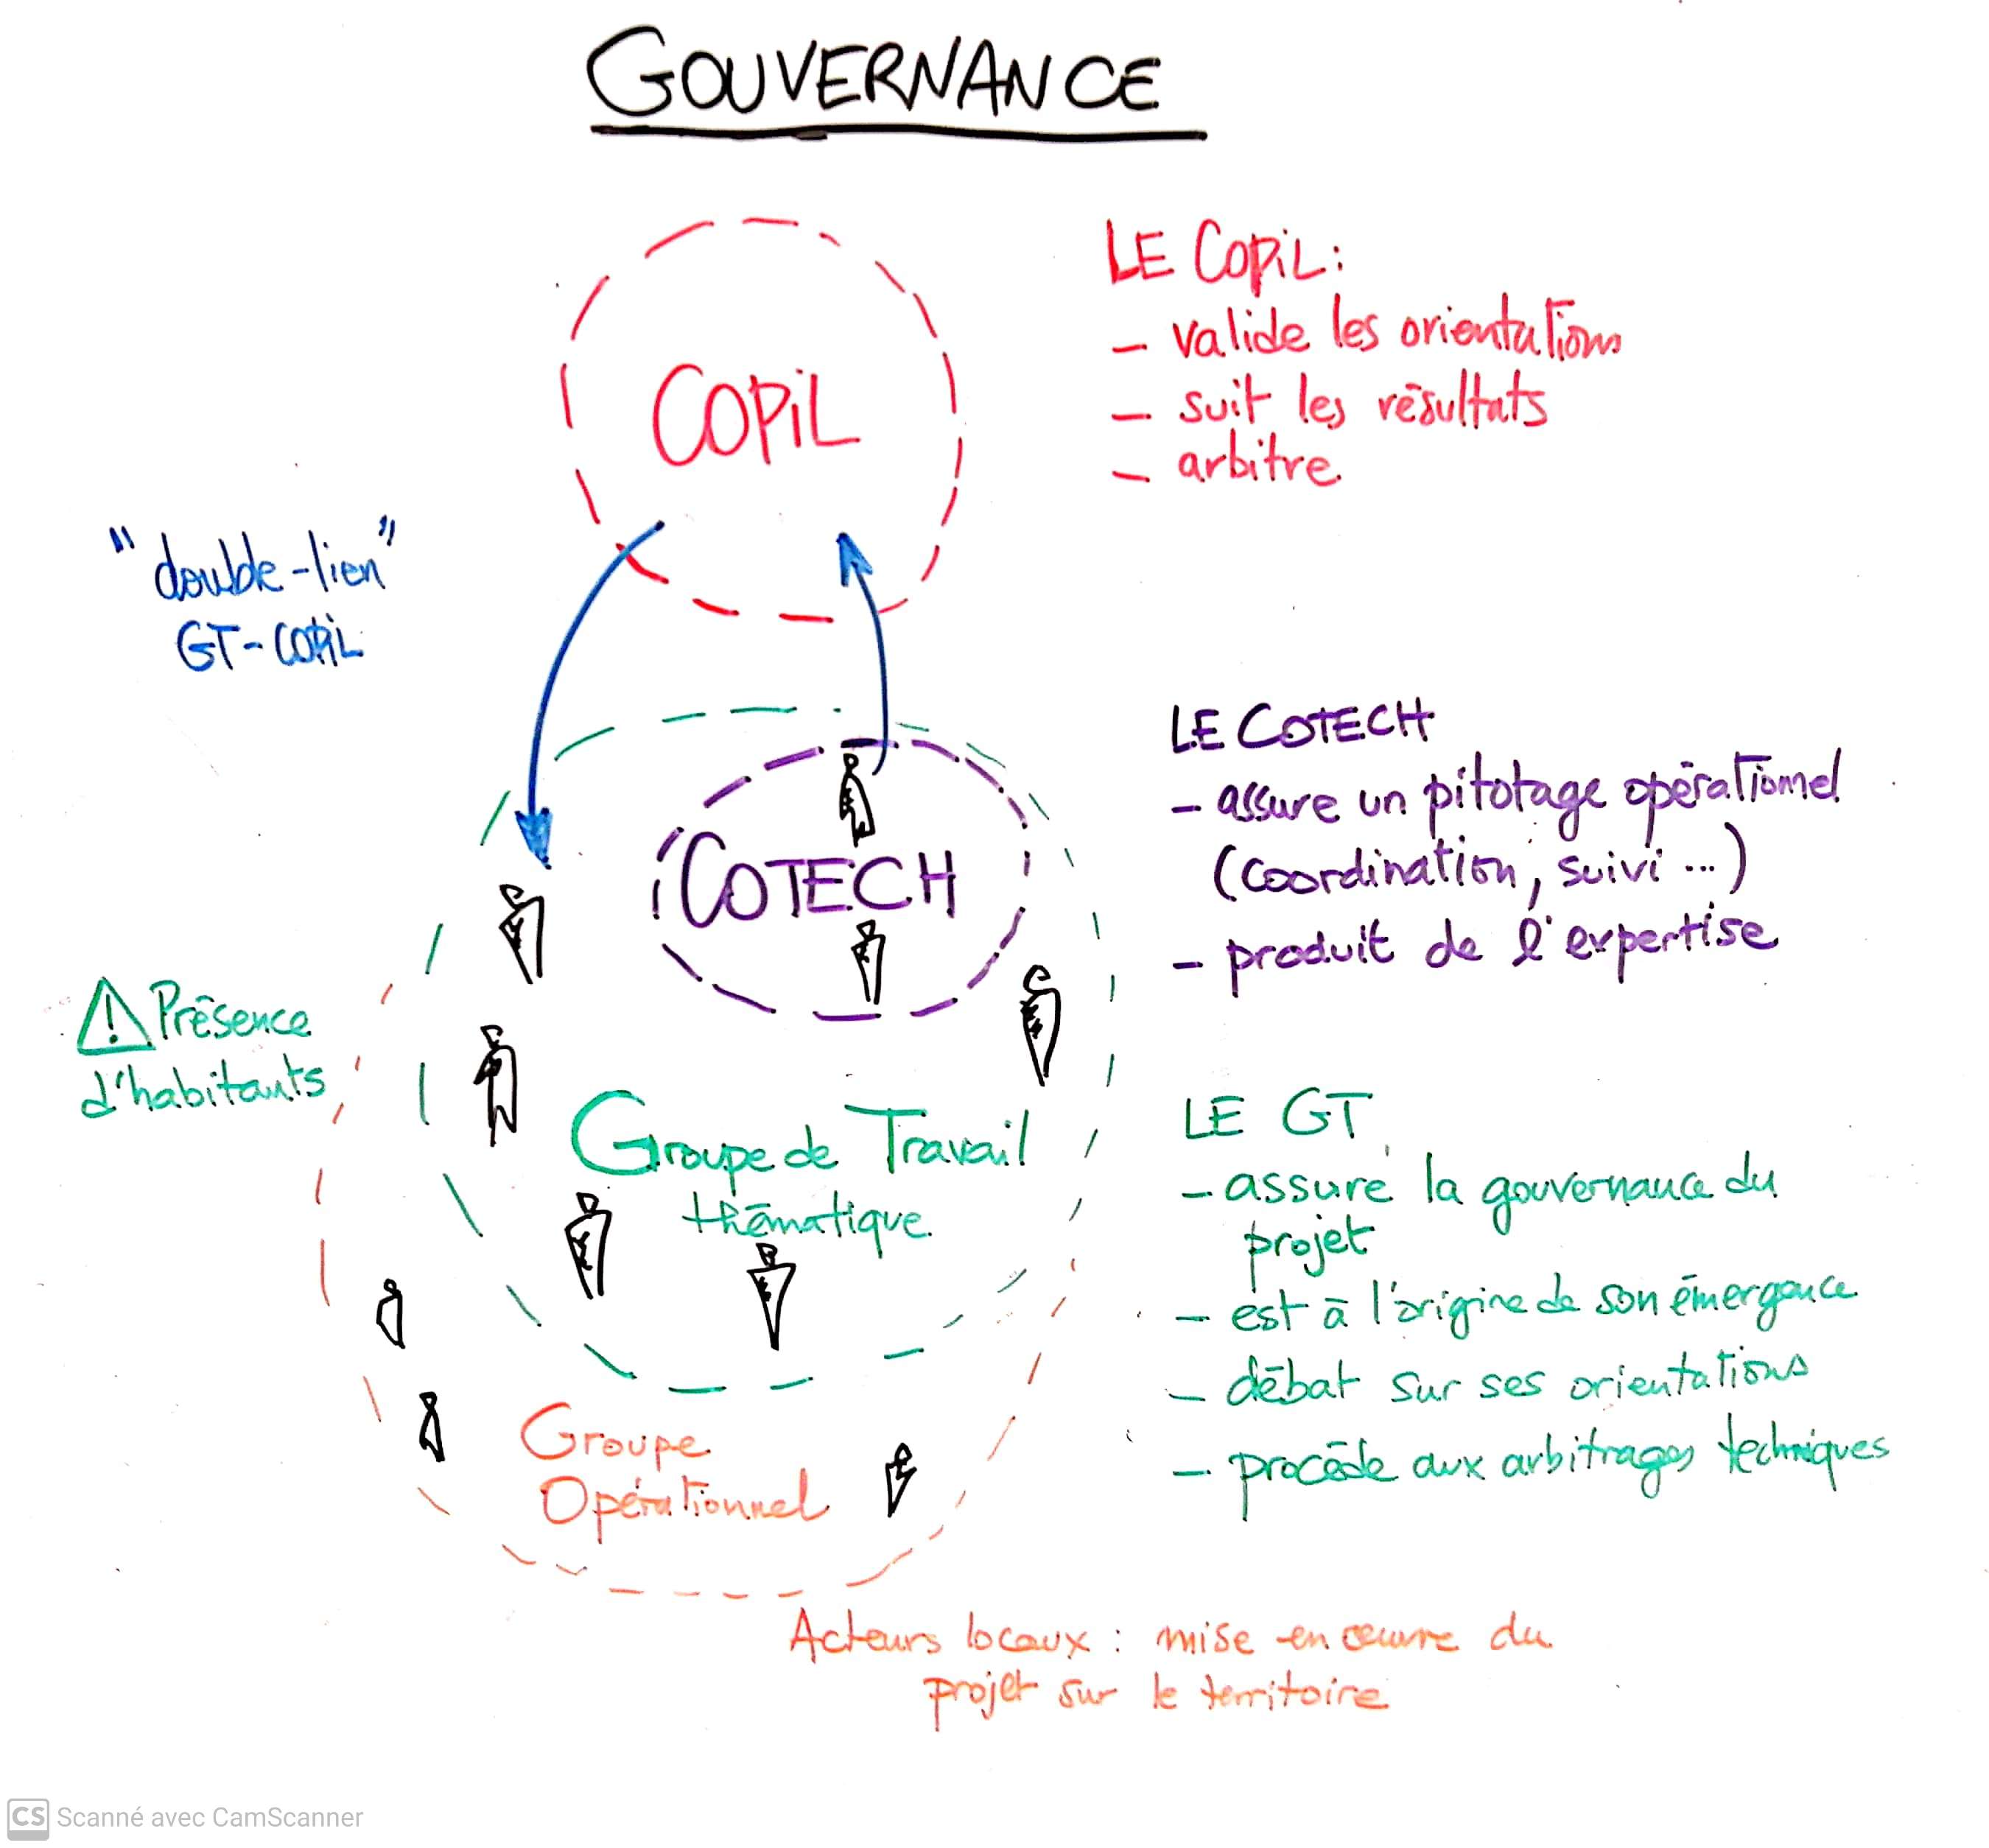 GOUVERNANCE
COPiL
LE COPiL:
- valide les orientations
- suit les résultats
- arbitre
"double-lien"
GT-COPiL
COTECH
LE COTECH
- assure un pitotage opérationnel
(coordination, suivi ...)
- produit de l'expertise
⚠ Présence
d'habitants
Groupe de Travail
thématique
LE GT
- assure la gouvernance du
projet
- est à l'origine de son émergence
- débat sur ses orientations
- procède aux arbitrages techniques
Groupe
Opérationnel
Acteurs locaux : mise en œuvre du
projet sur le territoire
CS Scanné avec CamScanner